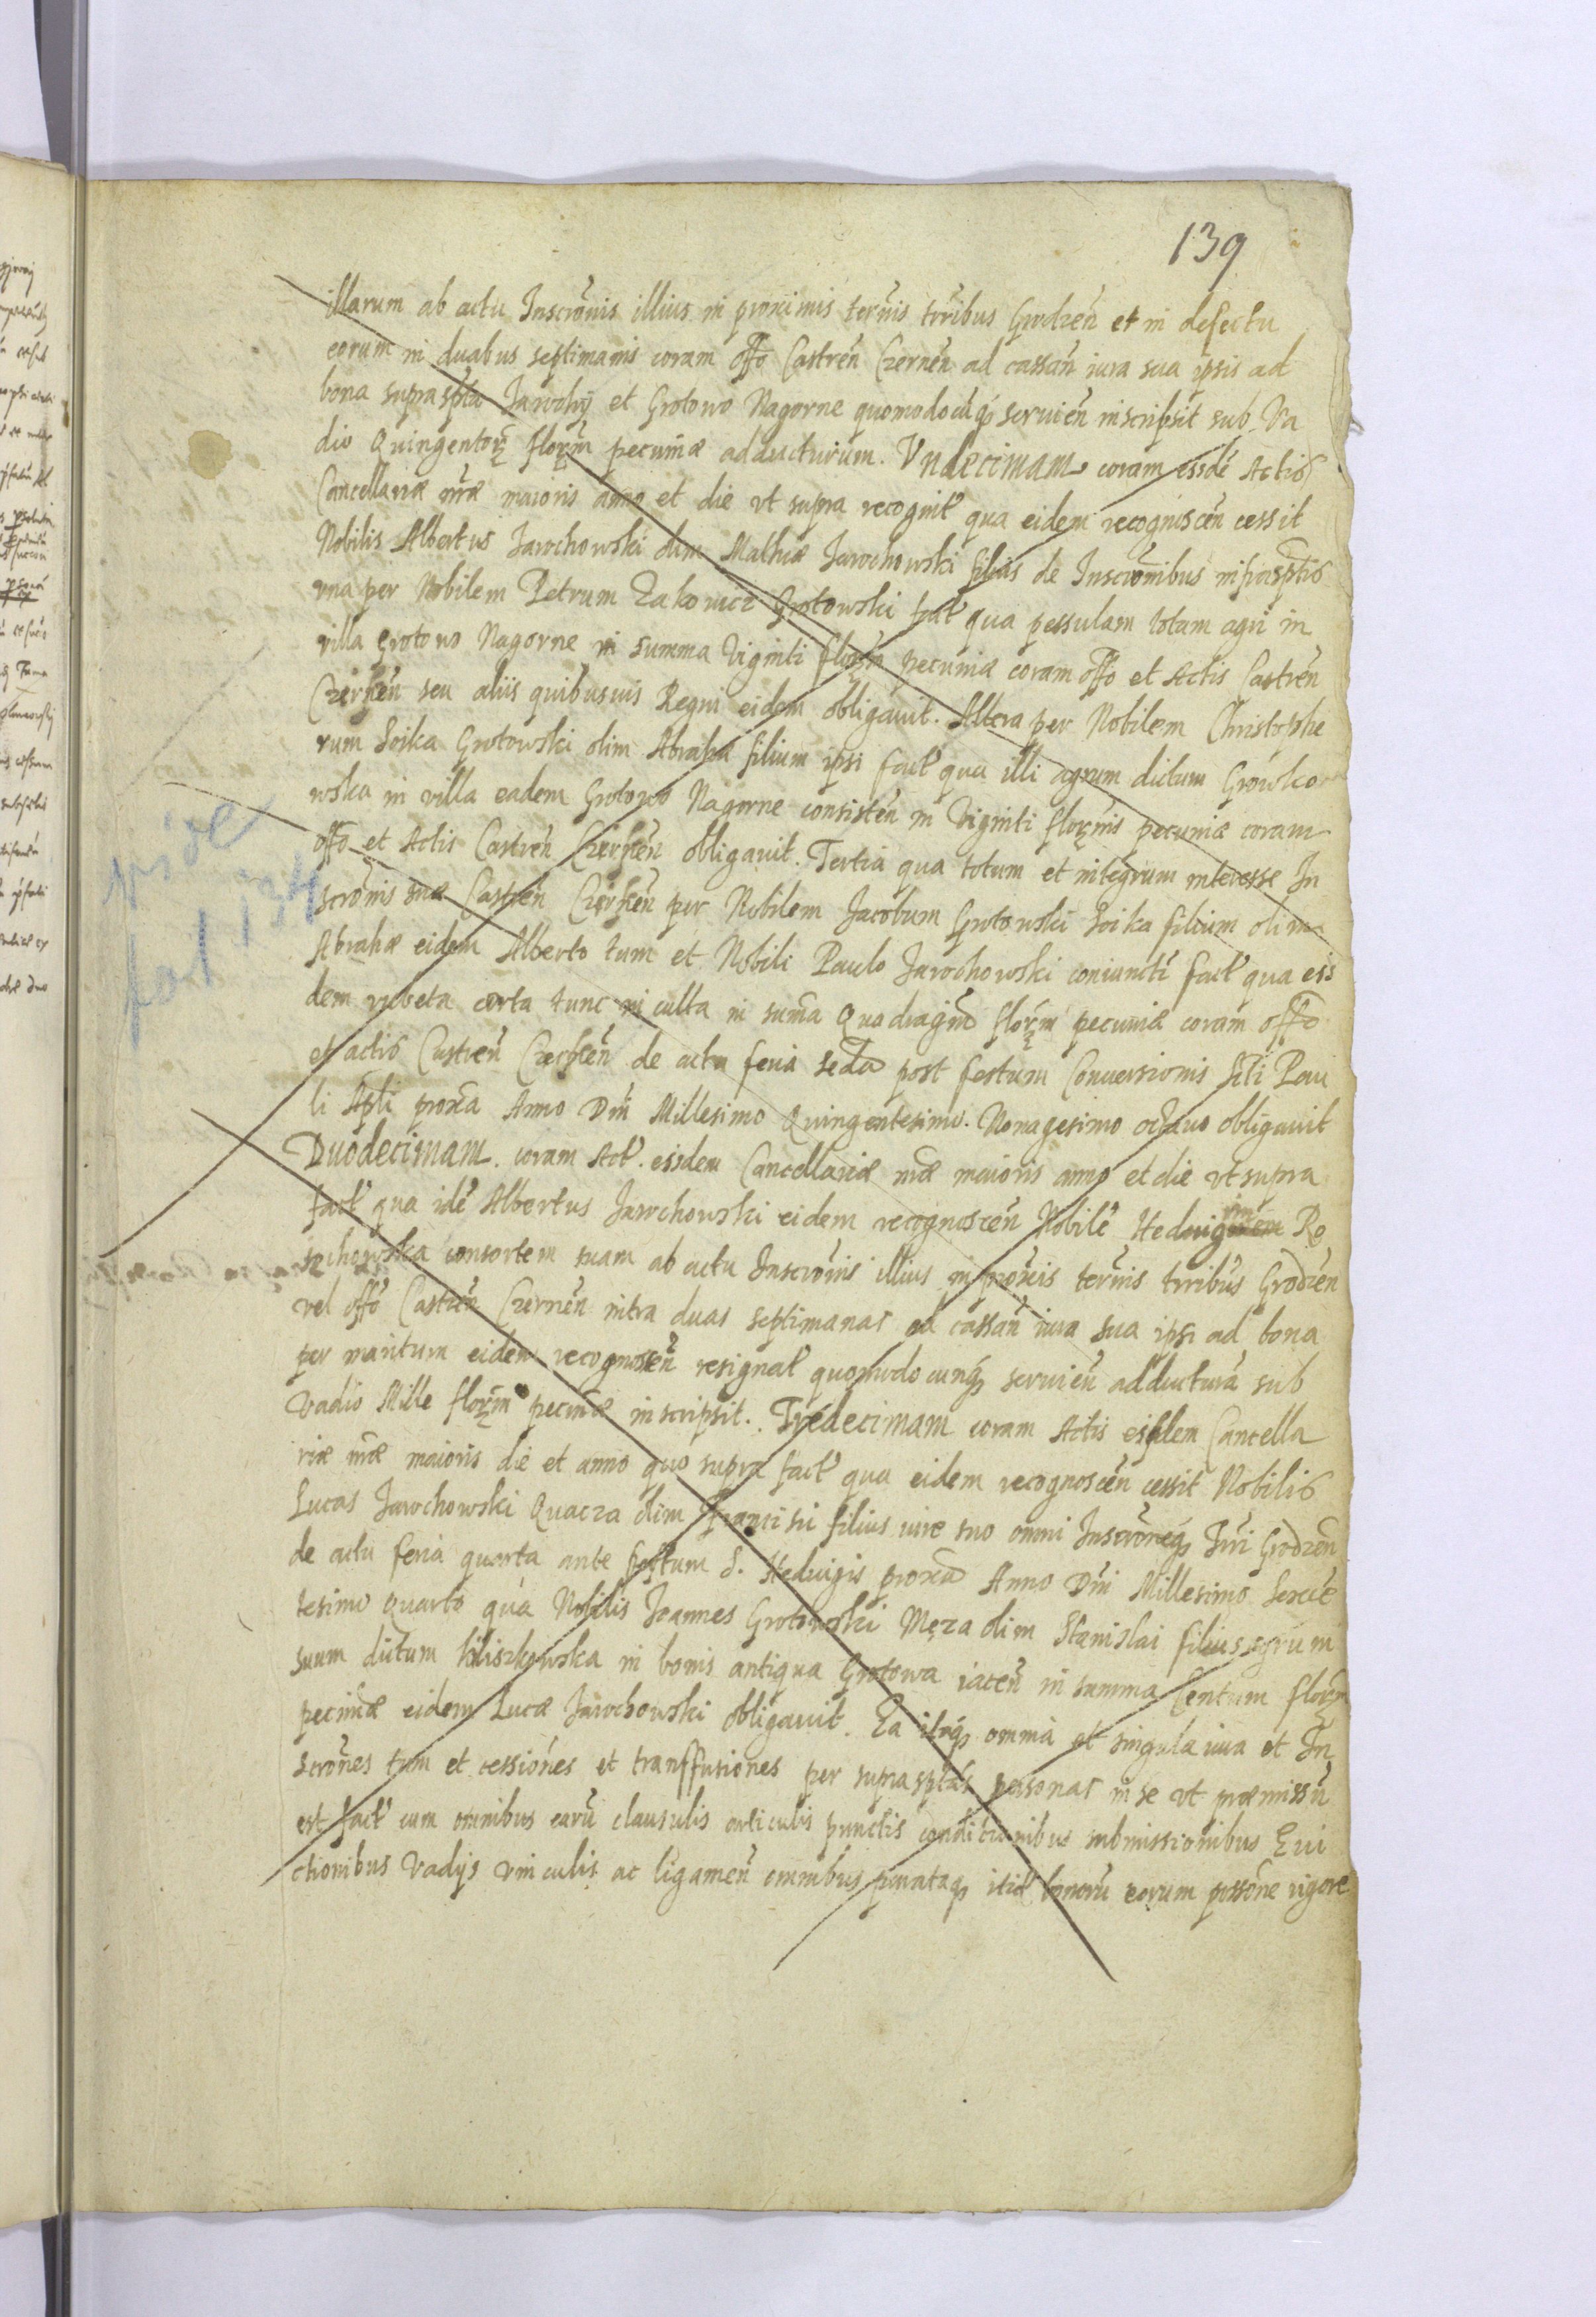 139
illarum ab actu Inscrōnis illius in proximis terīnis trribus Grodzeñ et in defectu
eorum in duabus septimanis coram offo Castreñ Czerneñ ad cassañ iura sua ipsis ad
bona suprasptā Jarochÿ et Grotowo Nagorne quomodocūq servieñ inscripsit sub Va
dio Quingentorȝ florȝm pecuniæ adducturum. Vndecimam coram eisdē Actis
Cancellariæ nr̄æ maioris anno et die vt supra recognit̄ qua eidem recogniscēn cessit
Nobilis Albertus Jarochowski olim Mathiæ Jarochowski filius de Inscrōnibus infrasptis
vna per Nobilem Petrum Zakowicz Grotowski fact̄ qua pessulam totam agri in
villa Grotowo Nagorne in summa Viginti florȝm pecuniæ coram offo et Actis Castreñ
Czerseñ seu aliis quibusuis Regni eidem obligauit. Altera per Nobilem Christophe
rum Soika Grotowski olim Abrahæ filium ipsi fact̄ qua illi agrum dictum Growko
wska in villa eadem Grotowo Nagorne consisteñ in Viginti florȝnis pecuniæ coram
offo et Actis Castreñ Czerseñ obligauit. Tertia qua totum et integrum interesse In
scrōnis suæ Castreñ Czerseñ per Nobilem Jacobum Grotowski Soika filium olim
Abrahæ eidem Alberto tum et Nobili Paulo Jarochowski coniuncti fact̄ qua eis
dem rubeta certa tunc in culta in sum̄a Quadragin̄ florȝm pecuniæ coram offo
et actis Castreñ Czerseñ de actu feria secda post festum Conuersionis Scti Pau
li Apli proxa Anno Dni Millesimo Quingentesimo. Nonagesimo octauo obligauit
Duodecimam. coram Act̄. eisdem Cancellariæ nr̄æ maioris anno et die vt supra
fact̄ qua idē Albertus Jarochowski eidem recognoscēn Nobilē Heduig vim Ro
sochowska consortem suam ab actu Inscrōnis illius in proxīs terīnis trribus Grodzeñ
vel offo Castreñ Czerneñ intra duas septimanas ad cassañ iura sua ipsi ad bona
per maritum eidem recognosceñ resignat̄ quomodocunq servieñ adducturā sub
Vadio Mille florȝm pecuniæ inscripsit. Tredecimam coram Actis eisdem Cancella
riæ nr̄æ maioris die et anno quo supra fact̄ qua eidem recognoscēn cessit Nobilis
Lucas Jarochowski Quacza olim Francisci filius iure suo omni Inscrōneq Trri Grodzeñ
de actu feria quarta ante festum S. Heduigis proxa Anno Dni Millesimo Sexcē
tesimo Quarto qua Nobilis Joannes Grotowski Męza olim Stanislai filius agrum
suum dictum kliszkowska in bonis antiqua Grotowa iaceñ in summa Centum florȝm
pecuniæ eidem Lucæ Jarochowski obligauit. Ea itaq omnia et singula iura et In
scrōnes tum et cessiones et transfusiones per suprasptas personas in se vt præmissū
est fact̄ cum omnibus earū clausulis articulis punctis conditionibus submissionibus Eui
ctionibus Vadÿs vinculis ac ligameñ omnibus parataq itid̄ bonorū eorum possone vigore
vide
fol 134